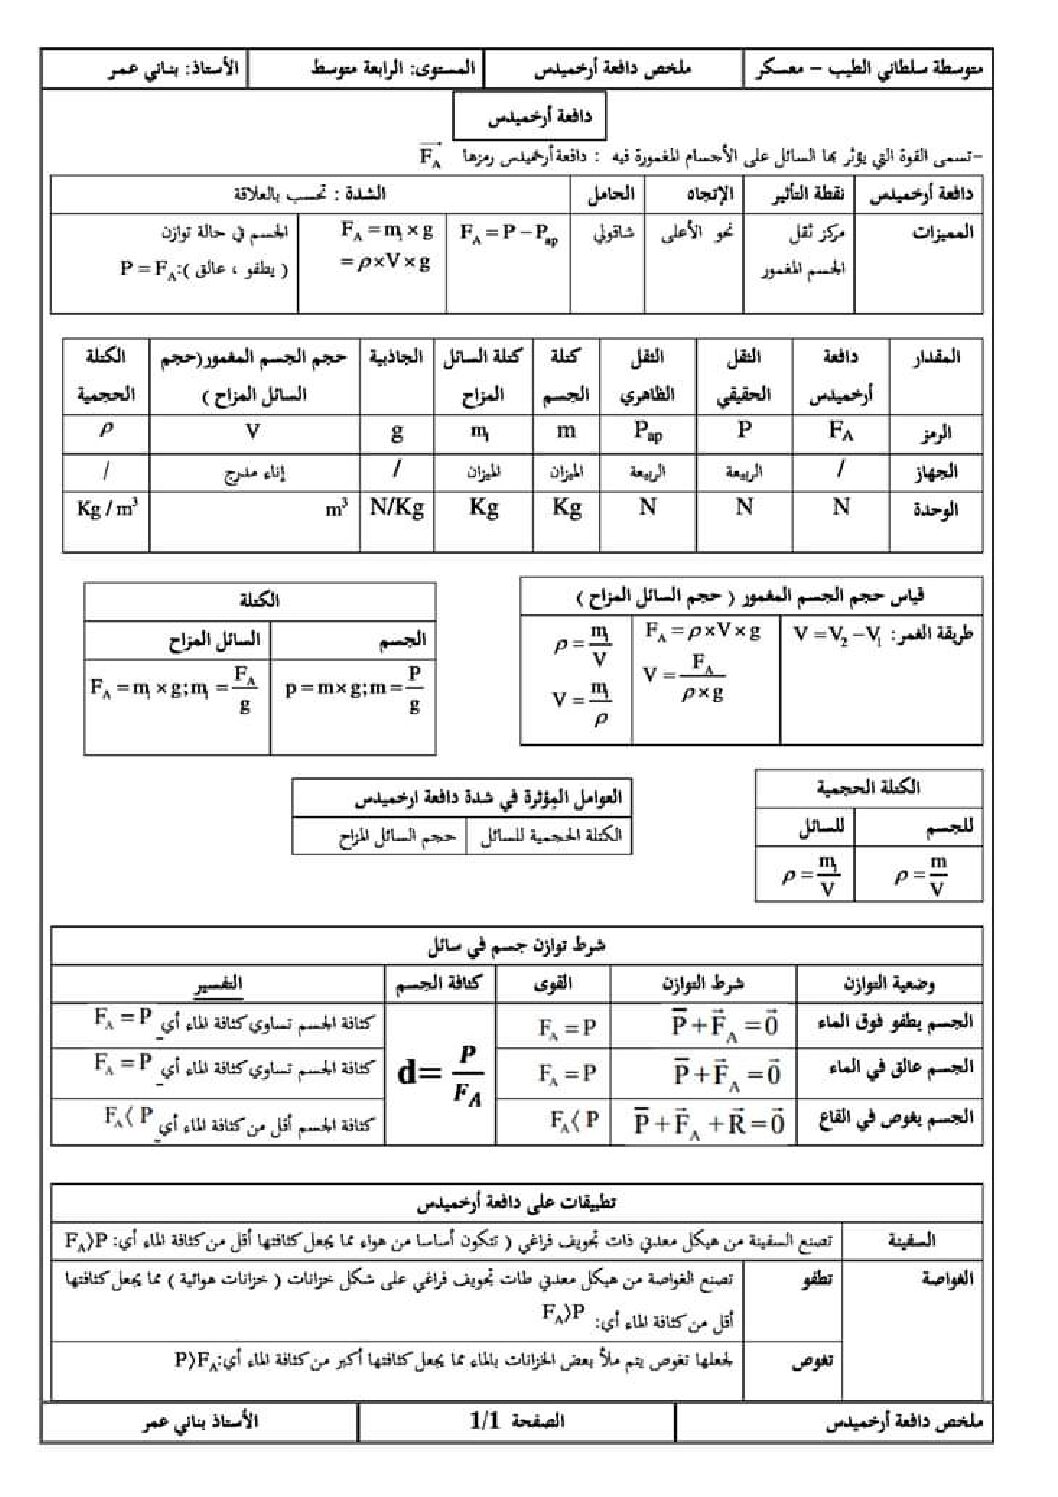 متوسطة سلطاني الطيب – معسكر
ملخص دافعة أرخميدس
المستوى: الرابعة متوسط
الأستاذ: بناني عمر
دافعة أرخميدس
-تسمى القوة التي يؤثر بها السائل على الأجسام المغمورة فيه : دافعة أرخميدس رمزها F_A
دافعة أرخميدس | نقطة التأثير | الإتجاه | الحامل | الشدة : تحسب بالعلاقة
المميزات | مركز ثقل الجسم المغمور | نحو الأعلى | شاقولي | F_A = P − P_ap | F_A = m_l × g = ρ×V×g | الجسم في حالة توازن ( يطفو ، عالق ):P = F_A
المقدار | دافعة أرخميدس | الثقل الحقيقي | الثقل الظاهري | كتلة الجسم | كتلة السائل المزاح | الجاذبية | حجم الجسم المغمور(حجم السائل المزاح ) | الكتلة الحجمية
الرمز | F_A | P | P_ap | m | m_l | g | V | ρ
الجهاز | / | الربيعة | الربيعة | الميزان | الميزان | / | إناء مدرج | /
الوحدة | N | N | N | Kg | Kg | N/Kg | m³ | Kg / m³
قياس حجم الجسم المغمور ( حجم السائل المزاح )
طريقة الغمر: V = V₂ − V₁ | F_A = ρ×V×g V = F_A / ρ×g | ρ = m_l / V V = m_l / ρ
الكتلة
الجسم | السائل المزاح
p = m×g; m = P / g | F_A = m_l × g; m_l = F_A / g
الكتلة الحجمية
للجسم | للسائل
ρ = m / V | ρ = m_l / V
العوامل المؤثرة في شدة دافعة ارخميدس
الكتلة الحجمية للسائل | حجم السائل المزاح
شرط توازن جسم في سائل
وضعية التوازن | شرط التوازن | القوى | كثافة الجسم | التفسير
الجسم يطفو فوق الماء | P + F_A = 0 | F_A = P | d= P / F_A | كثافة الجسم تساوي كثافة الماء أي F_A = P
الجسم عالق في الماء | P + F_A = 0 | F_A = P | كثافة الجسم تساوي كثافة الماء أي F_A = P
الجسم يغوص في القاع | P + F_A + R = 0 | F_A〈 P | كثافة الجسم أقل من كثافة الماء أي F_A〈 P
تطبيقات على دافعة أرخميدس
السفينة | تصنع السفينة من هيكل معدني ذات تجويف فراغي ( تتكون أساسا من هواء مما يجعل كثافتها أقل من كثافة الماء أي: F_A〉P
الغواصة | تطفو | تصنع الغواصة من هيكل معدني طات تجويف فراغي على شكل خزانات ( خزانات هوائية ) مما يجعل كثافتها
أقل من كثافة الماء أي: F_A〉P
تغوص | لجعلها تغوص يتم ملأ بعض الخزانات بالماء مما يجعل كثافتها أكبر من كثافة الماء أي:P〉F_A
ملخص دافعة أرخميدس
الصفحة 1/1
الأستاذ بناني عمر